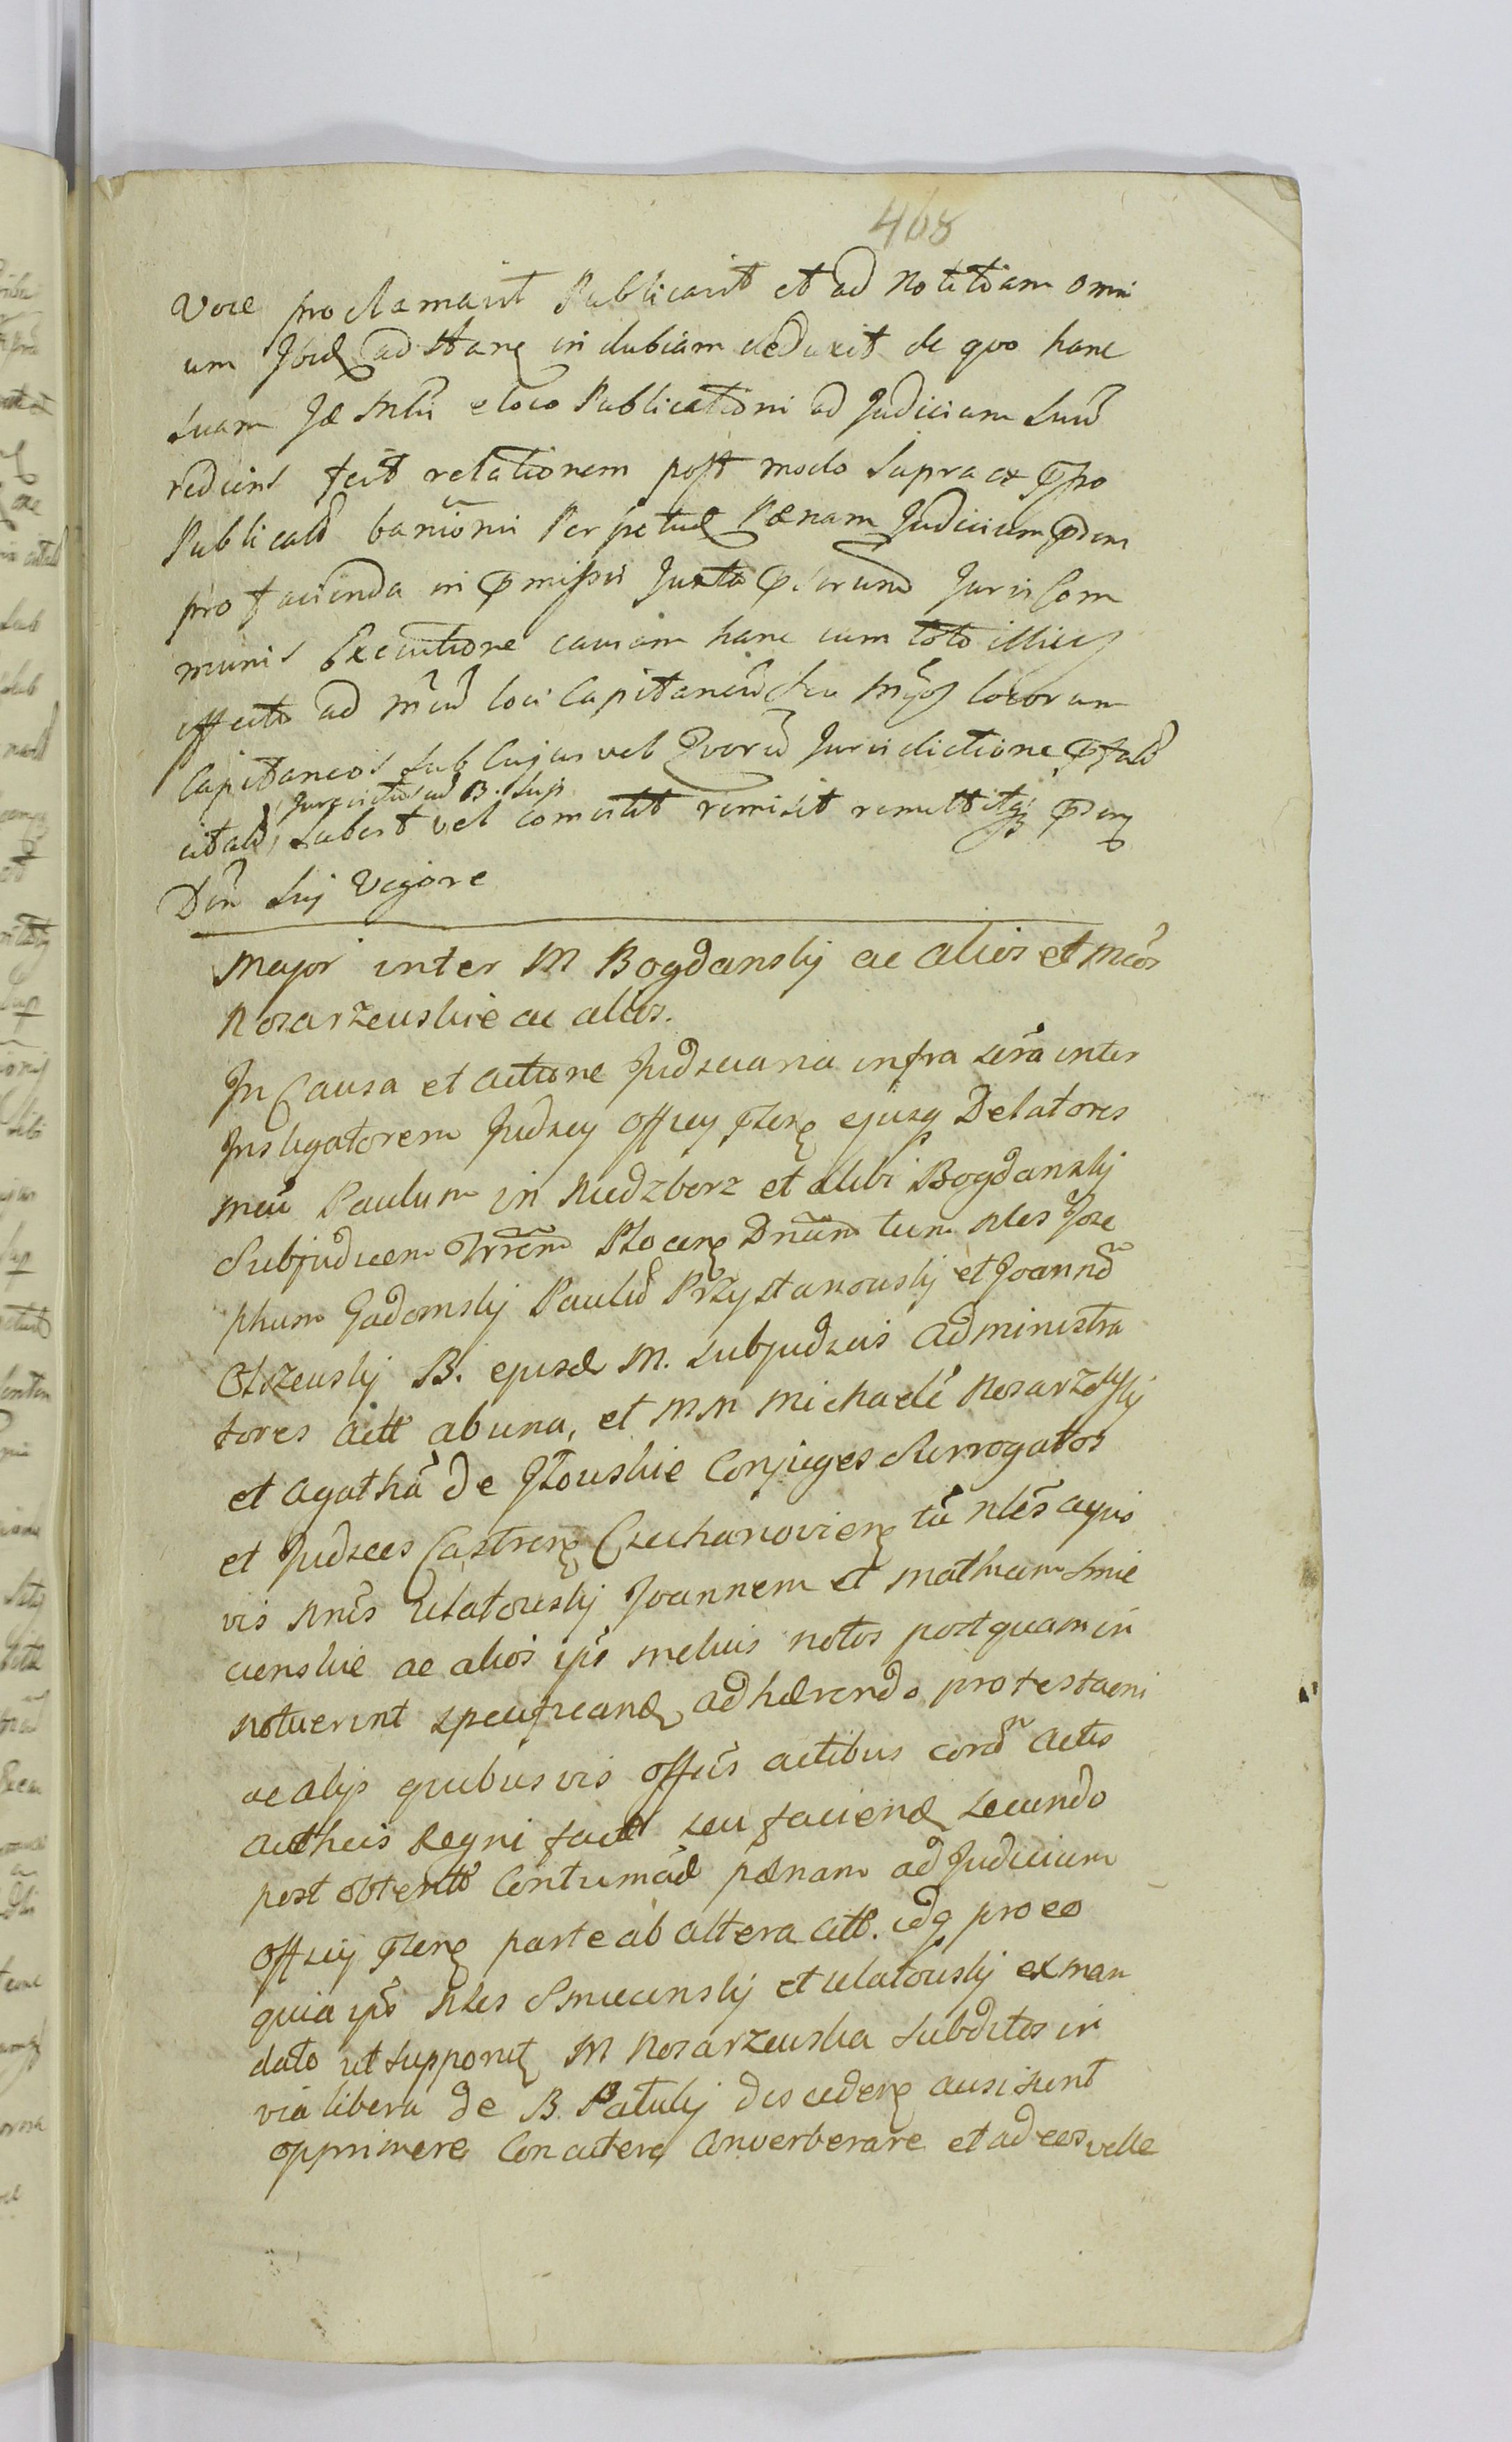 468
Voce proclamavit Publicavit et ad Notitiam omni
um Ibid adstanͤ in dubiam deduxit de quo hanc
suam Id Mlũ e loco Publicationi ad Judicium suũ
rediens fecit relationem post modo supra ex
Publicatã baniõnis Perpetuæ Pænam Judicium
pro facienda in pmissis Juxta Juris Com
munis Executione causam hanc cum toto illius
effectu ad loci Capitaneũ seu locorum
Capitaneos sub Cujus vel Quorũ Jurisdictione
Jurevictus ad B. sup
citatũ, subest vel comestit remisit remittitq
Dñ sui Vigore
Major inter M Bogdanskÿ ac alios et Mcos
Kosarzewskie ac alios.
In Causa et actione Judiciaria infra scrã inter
Instigatorem Judicÿ Officÿ ejusq Delatores
Mcũ Paulum in Niedzborz et alibi Bogdanskÿ
Subjudicem Plocenͤ Dnum tum Nles Jose
phum Gadomskÿ Paulũ Przystanowskÿ et Joannẽ
Olszewskÿ B. ejusd M. Subjudicis administra
tores actt ab una, et MM Michaelẽ Kosarzewskÿ
et Agathã de Jłowskie Conjuges Surrogatos
et Judices Castrenͤ Czechanovienͤ tũ Nles aquis
vis Nñis Ulatowskÿ Joannem et Mathiam Smie
cienskie ac alios ips melius notos postquam in
notuerint specificand adhærendo protestaõni
ac alÿs quibusvis offiis actibus corã Actis
authcis Regni fact seu faciend secundo
post obtentã Contumac pænam ad Judicium
Officÿ parte ab altera citt. idq pro eo
quia ips Nles Smiecinskÿ et Ulatowskÿ ex man
dato ut supponit M Kosarzewska subditos in
via libera de B. Patulÿ discedere ausi sunt
opprimere Concutere Converberare et ad eos velle